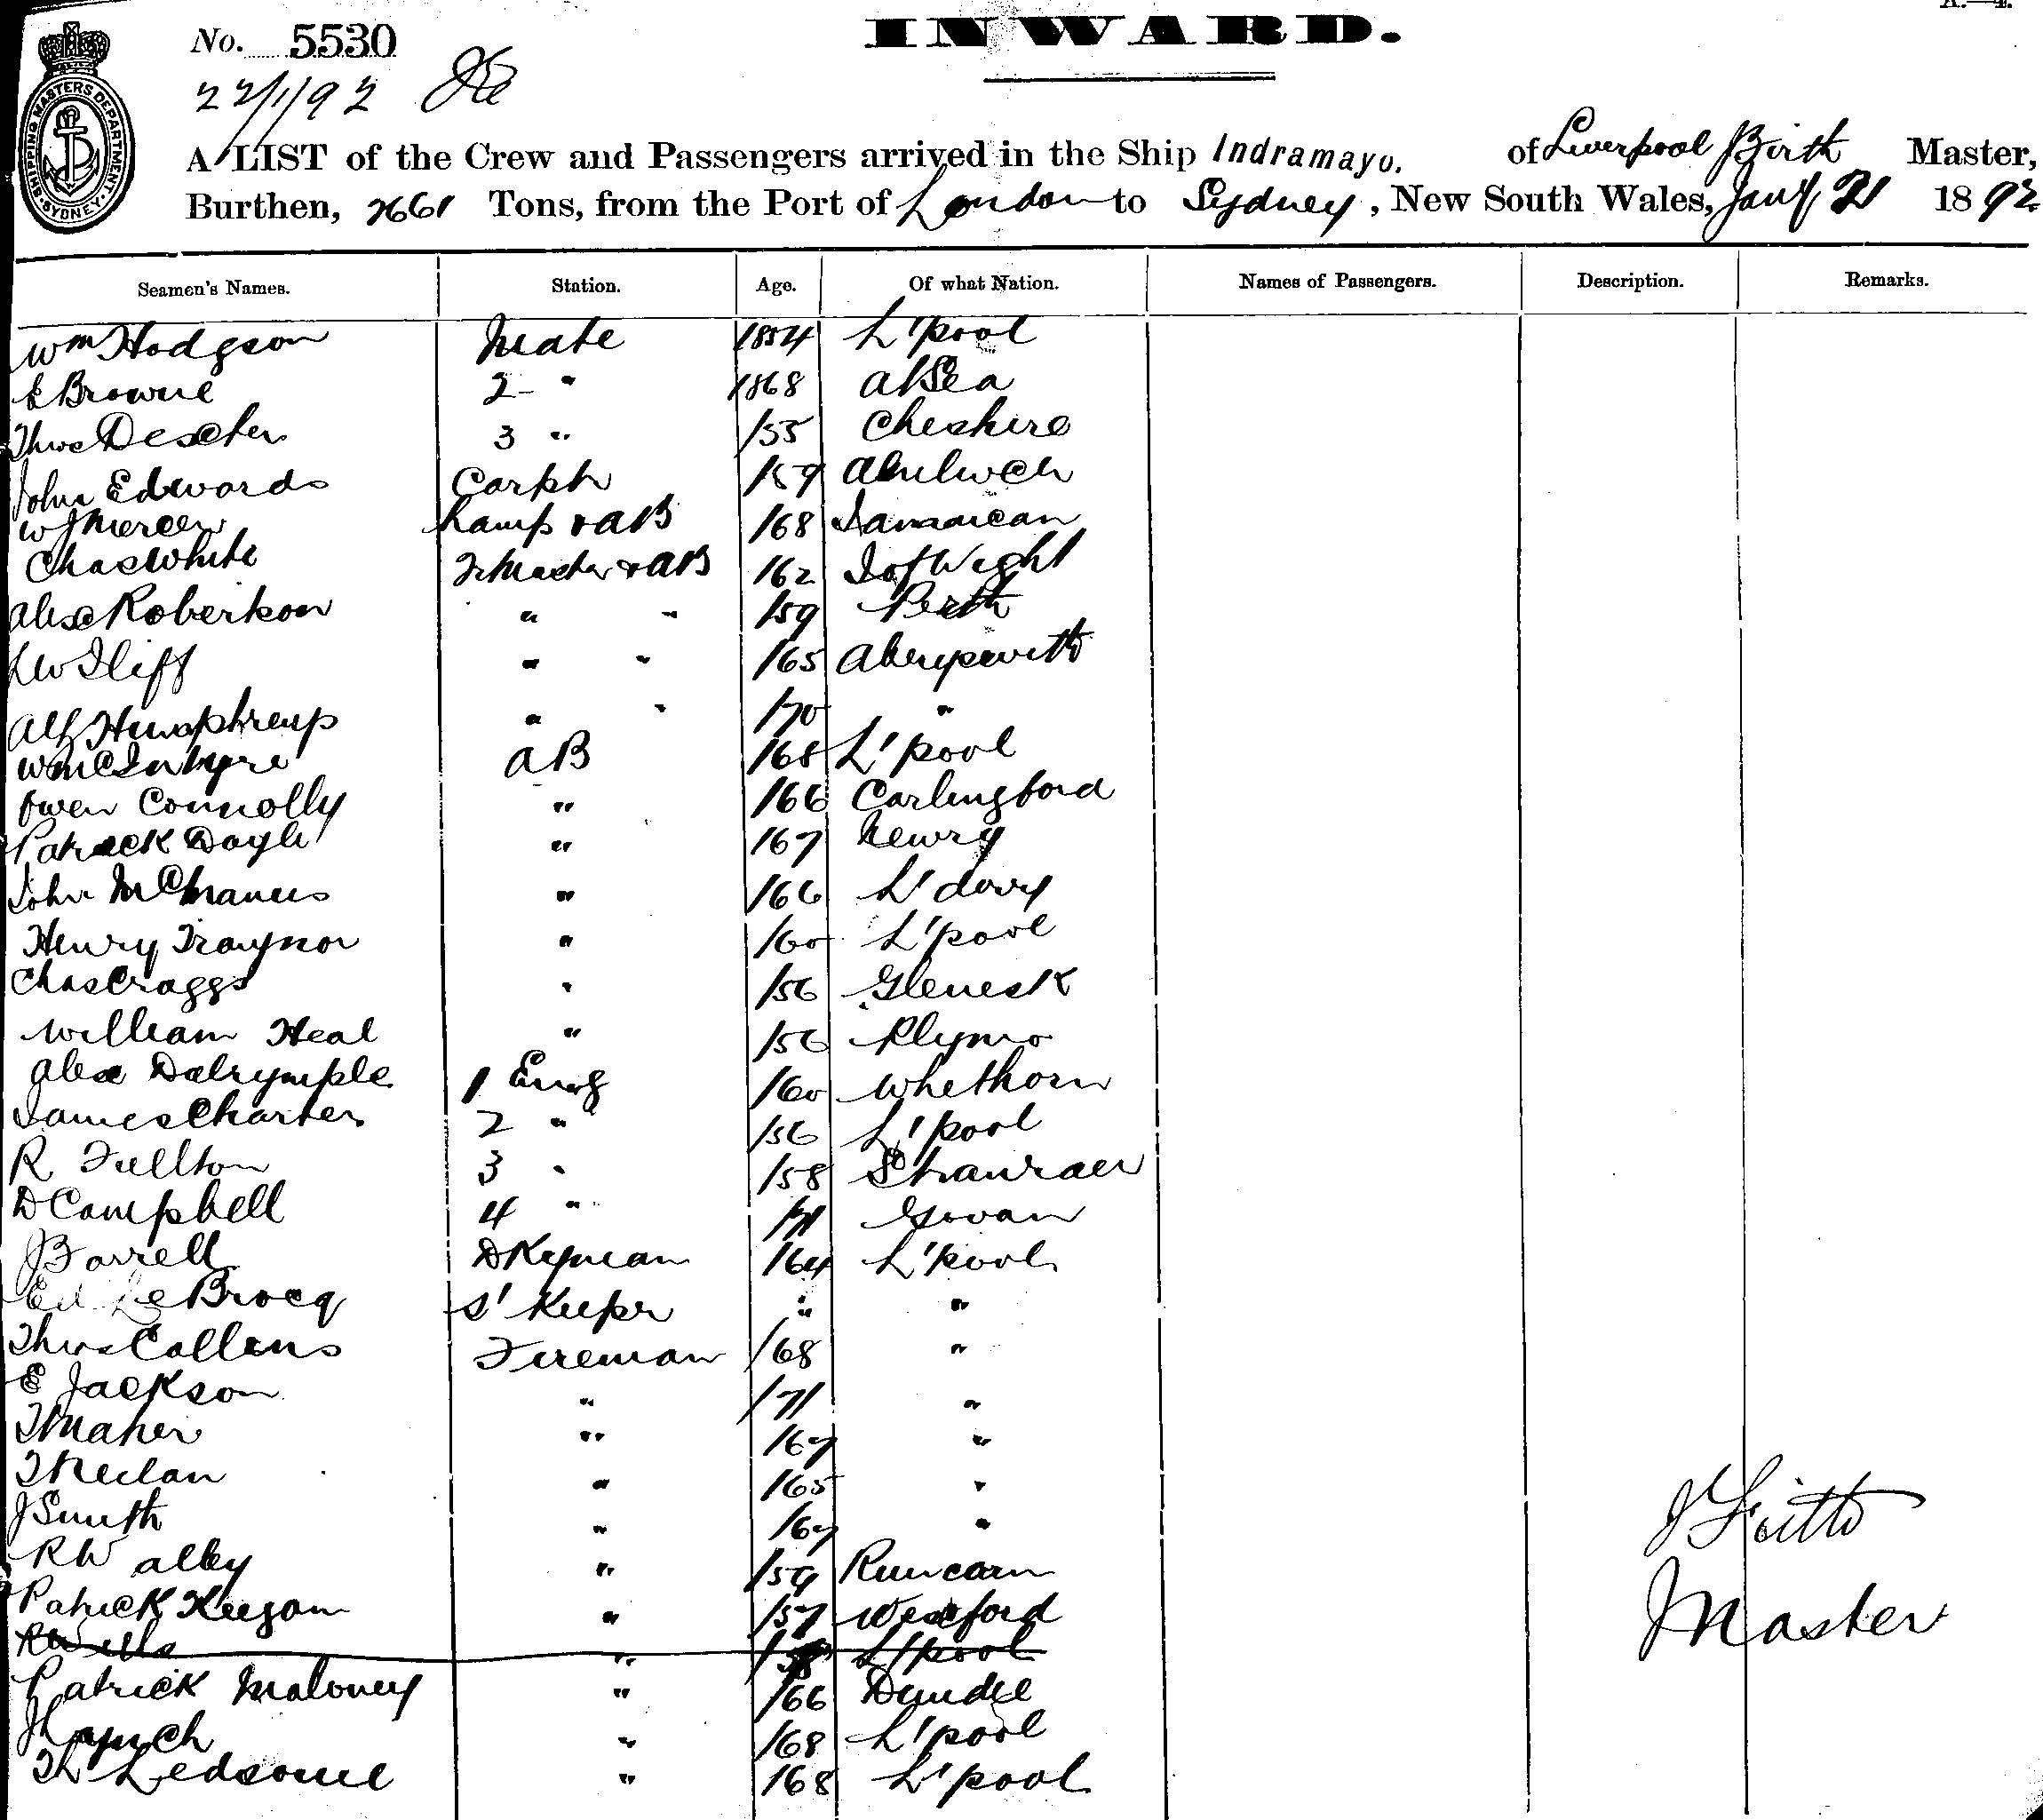 A.—4.
No. 5530
INWARD.
22/1/92
SHIPPING MASTERS DEPARTMENT SYDNEY
A LIST of the Crew and Passengers arrived in the Ship Indramayo. of Liverpool Master,
Burthen, 2661 Tons, from the Port of London to Sydney, New South Wales, Jany 21 1892
Seamen's Names. Station. Age. Of what Nation. Names of Passengers. Description. Remarks.
Wm Hodgson Mate 1854 L'pool
E Browne 2 " 1868 at Sea
Thos Dexter 3 " /55 Cheshire
John Edwards Carptr /59 Amlwch
W J Mercer Lamp & AB /68 Jamaican
Chas White & AB /62 I of Wight
Alex Robertson " " /59 Perth
Iliff " " /65 Aberyswith
Alf Humphreys " " /70 "
W McIntyre AB /68 L'pool
Owen Connolly " /66 Carlingford
Patrick Doyle " /67 Newry
John McManus " /66 L'derry
Henry Traynor " /60 L'pool
Chas Craggs " /56 Glenesk
William Heal " /56 Plymo
Alex Dalrymple 1 Eng /60 Whethorn
James Charter 2 " /56 L'pool
R Fullton 3 " /58 Stranraer
D Campbell 4 " /71 Govan
J Farrell DKyman /64 L'pool
Ed Le Brocq S' Keeper " "
Thos Collins Fireman /68 "
E Jackson " /71 "
T Maher " /67 "
" /65 "
J Smith " /67 "
R W Alley " /59 Runcorn
Patrick Keegan " /57 Wexford
R Wells " L'pool
Patrick Maloney " /66 Dundee
J Lynch " /68 L'pool
Th Ledsome " /68 L'pool
Master